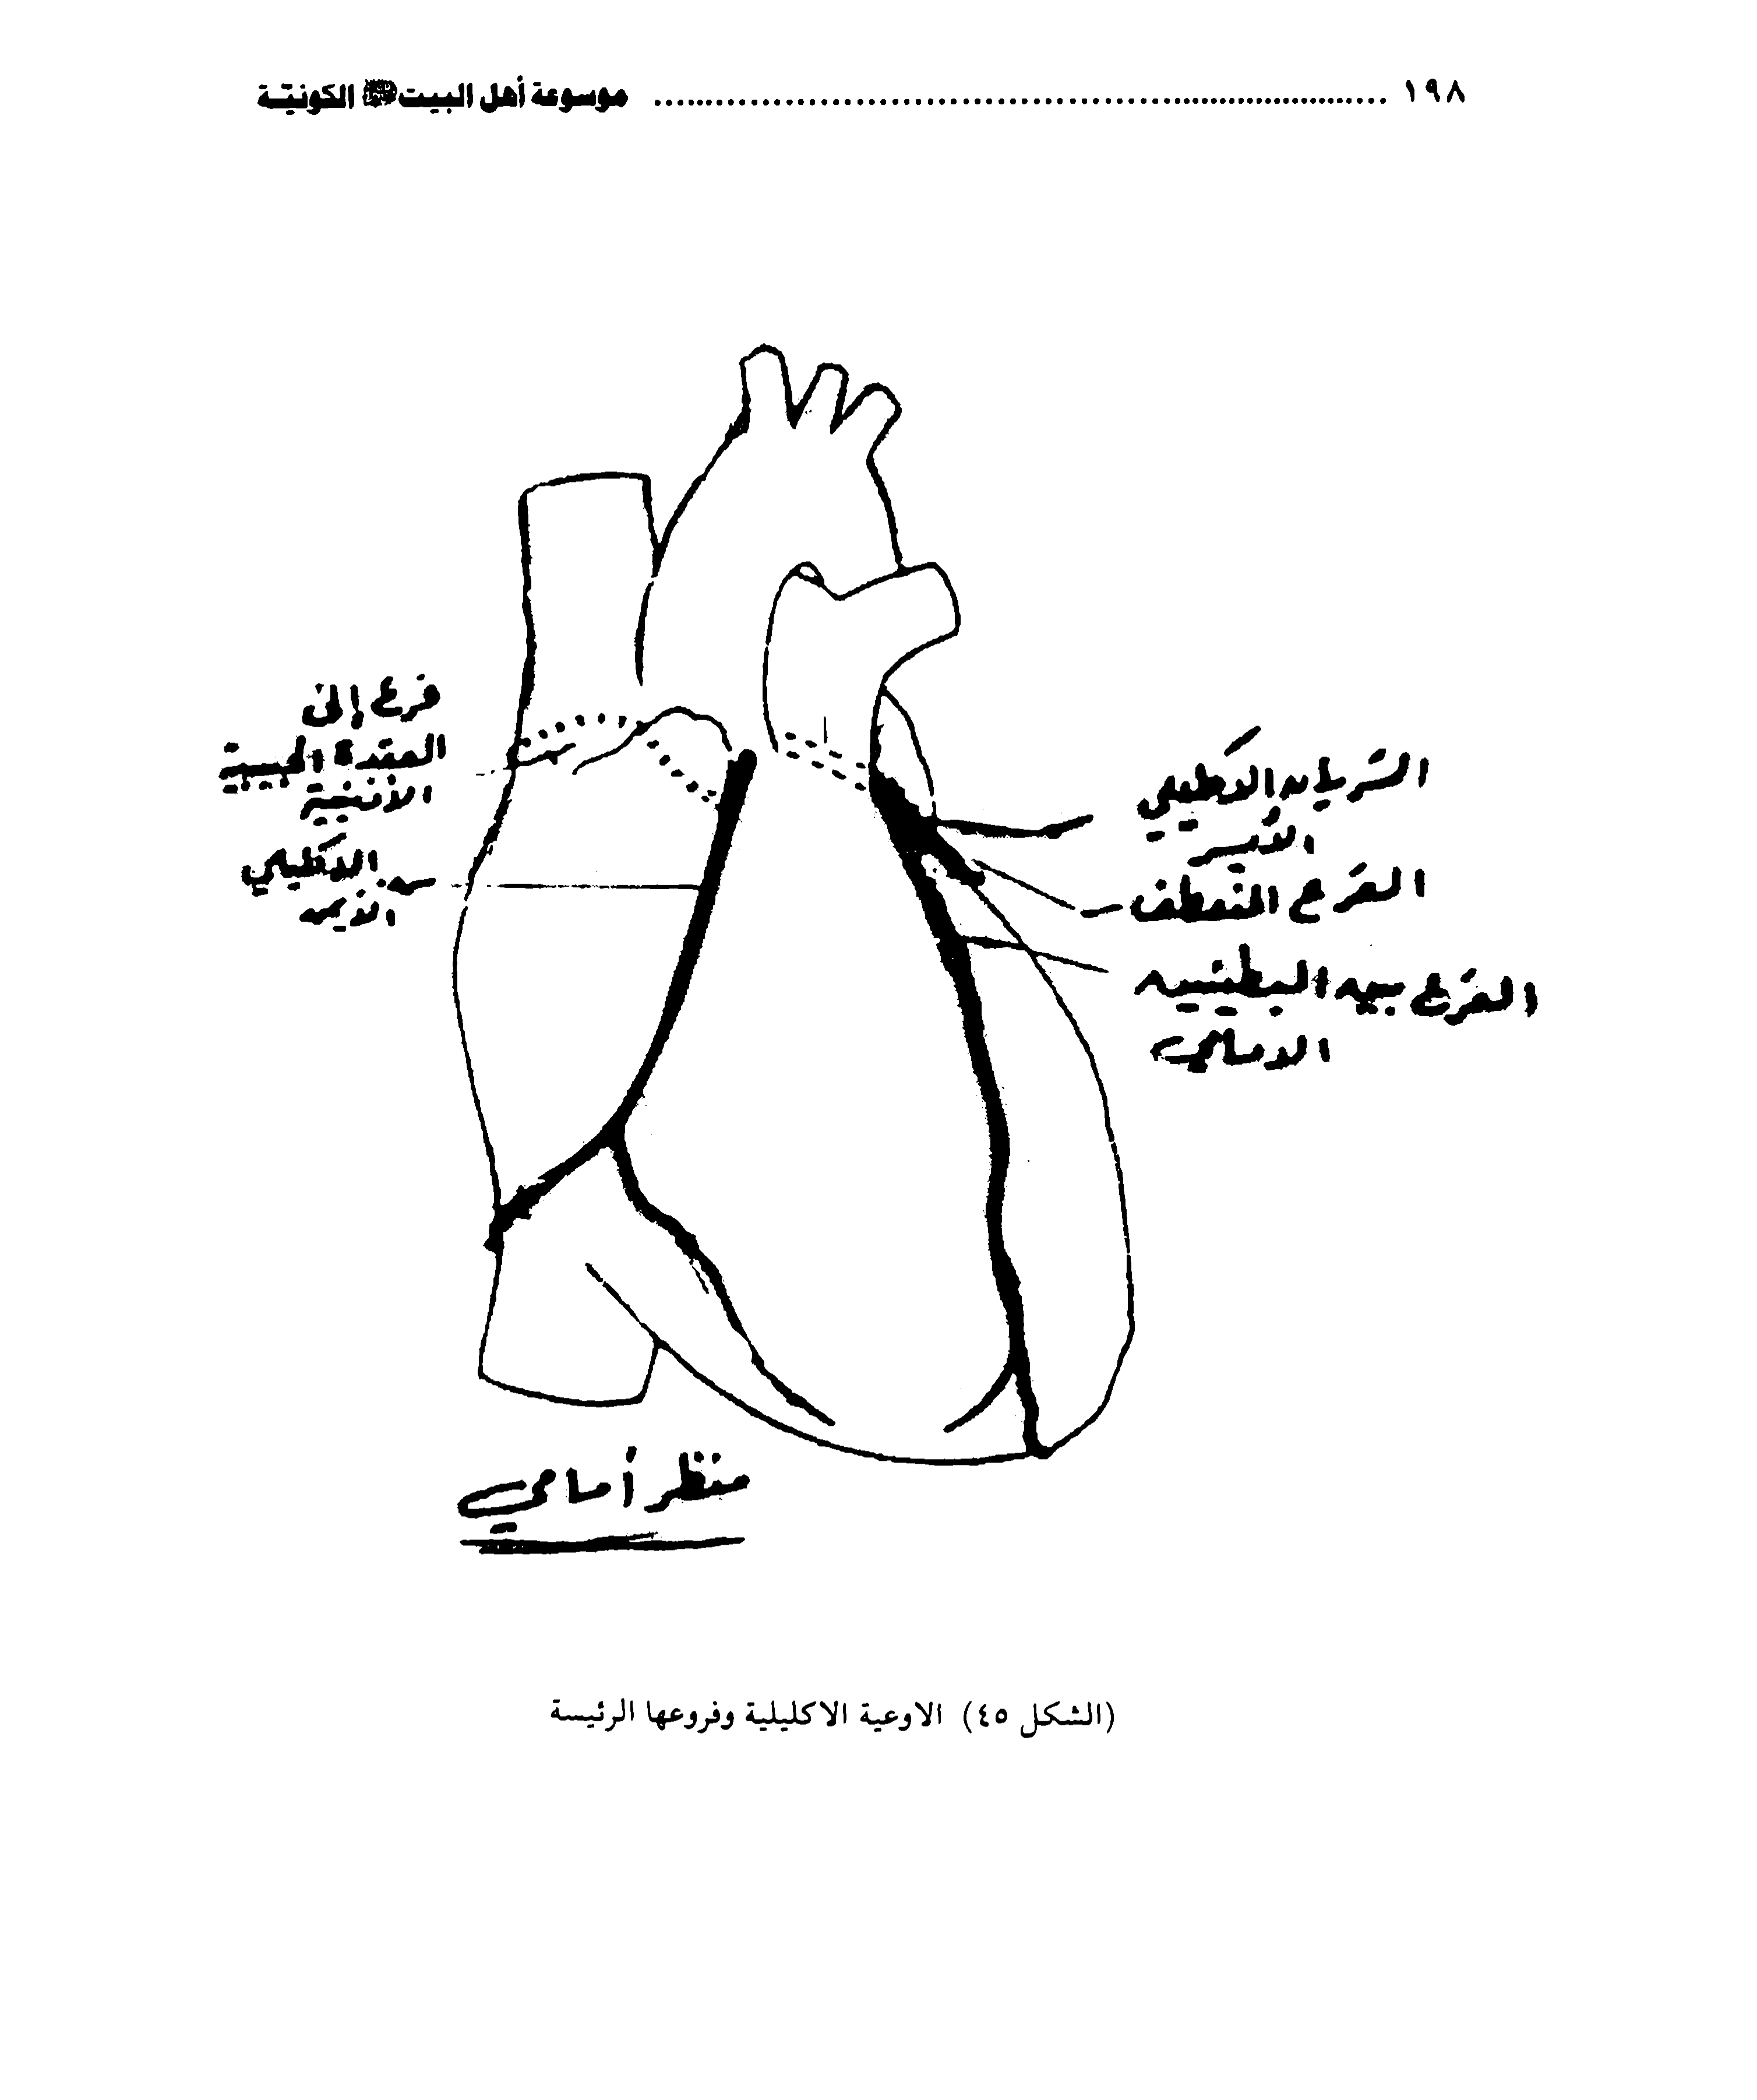 ١٩٨ ........................ موسوعة أهل البيت ﷺ الكونيّة
فرع إلى
العقدة الجيبية
الأذنية
الشريان الاكليلي
الأيسر
الاكليلي
الأيمن
الفرع المنعطف
الفرع بين البطينين
الامامي
منظر أمامي
(الشكل ٤٥) الاوعية الاكليلية وفروعها الرئيسة